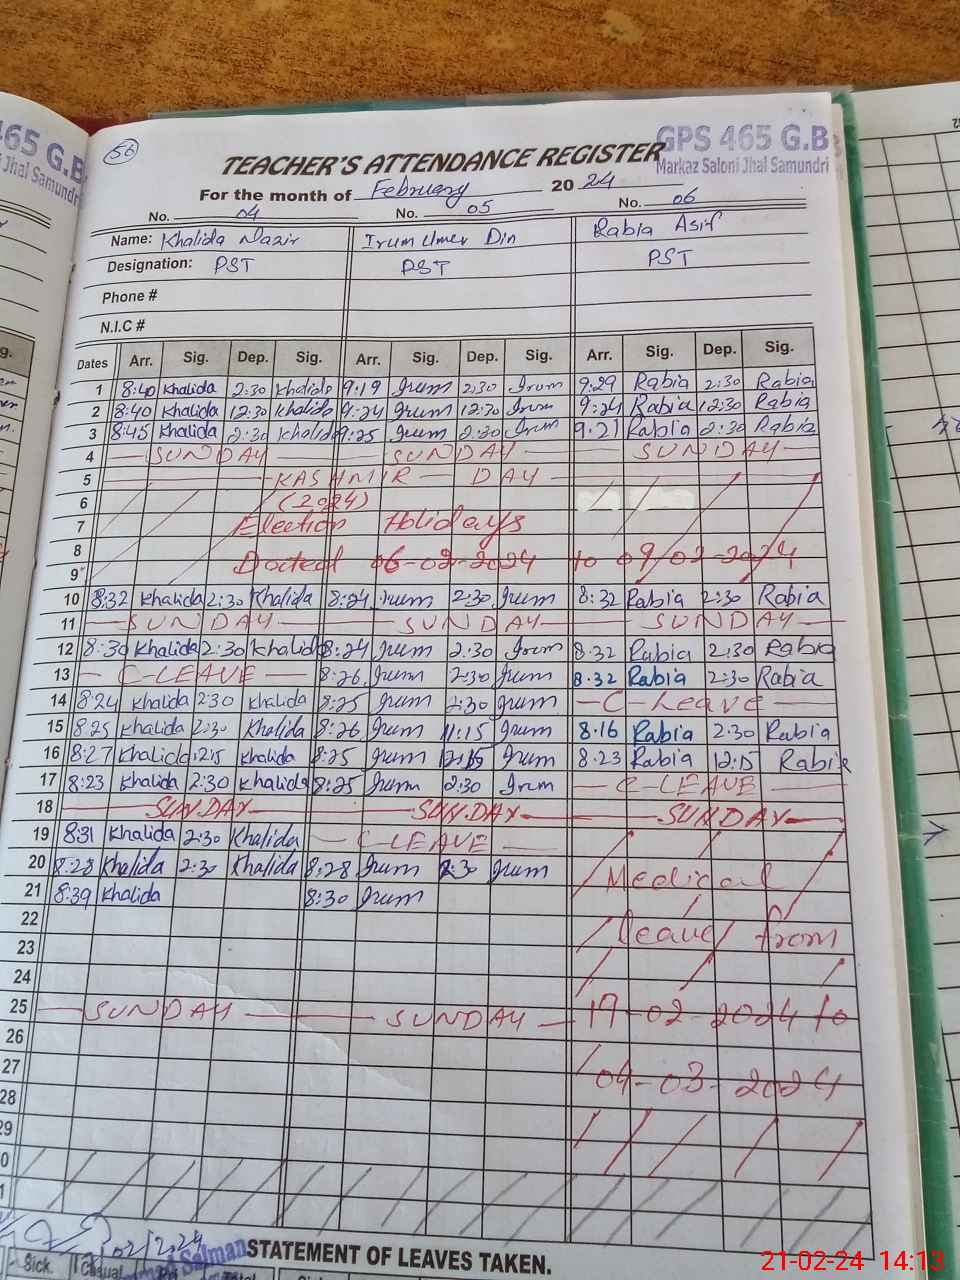 465 G.B.
Jhal Samundri
56
GPS 465 G.B
TEACHER'S ATTENDANCE REGISTER
Markaz Saloni Jhal Samundri
For the month of February 2024
No. 04 No. 05 No. 06
Name: Khalida Nazir Irum Umer Din Rabia Asif
Designation: PST PST PST
Phone #
N.I.C #
Dates Arr. Sig. Dep. Sig. Arr. Sig. Dep. Sig. Arr. Sig. Dep. Sig.
1 8:40 Khalida 2:30 Khalida 9:19 Irum 2:30 Irum 9:29 Rabia 2:30 Rabia
2 8:40 Khalida 12:30 Khalida 9:24 Irum 12:30 Irum 9:24 Rabia 12:30 Rabia
3 8:45 Khalida 2:30 Khalida 9:25 Irum 2:30 Irum 9:21 Rabia 2:30 Rabia
4 SUNDAY SUNDAY SUNDAY
5 KASHMIR DAY
6 (2024)
7 Election Holidays
8 Dated 06-02-2024 to 09/02-2024
9
10 8:32 Khalida 2:30 Khalida 8:24 Irum 2:30 Irum 8:32 Rabia 2:30 Rabia
11 SUNDAY SUNDAY SUNDAY
12 8:30 Khalida 2:30 Khalida 8:24 Irum 2:30 Irum 8:32 Rabia 2:30 Rabia
13 C-LEAVE 8:26 Irum 2:30 Irum 8.32 Rabia 2:30 Rabia
14 8:24 Khalida 2:30 Khalida 8:25 Irum 2:30 Irum C-Leave
15 8:25 Khalida 2:30 Khalida 8:26 Irum 11:15 Irum 8.16 Rabia 2:30 Rabia
16 8:27 Khalida 12:15 Khalida 8:25 Irum 12:15 Irum 8:23 Rabia 12:15 Rabia
17 8:23 Khalida 2:30 Khalida 8:25 Irum 2:30 Irum C-LEAVE
18 SUNDAY SUNDAY SUNDAY
19 8:31 Khalida 2:30 Khalida C-LEAVE
20 8:28 Khalida 2:30 Khalida 8:28 Irum 2:30 Irum Medical
21 8:39 Khalida 8:30 Irum
22 leave from
23
24
25 SUNDAY SUNDAY 19-02-2024 to
26
27 04-03-2024
28
29
0
1
02/2024
STATEMENT OF LEAVES TAKEN.
Sick. Casual Total
21-02-24 14:13